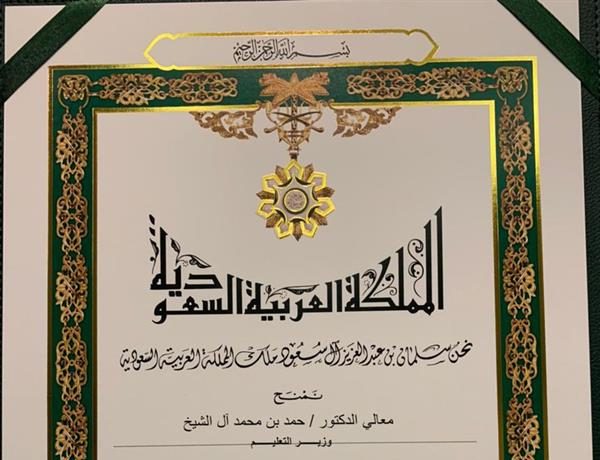 بسم الله الرحمن الرحيم
المملكة العربية السعودية
نحن سلمان بن عبدالعزيز آل سعود ملك المملكة العربية السعودية
نمنح
معالي الدكتور / حمد بن محمد آل الشيخ
وزير التعليم